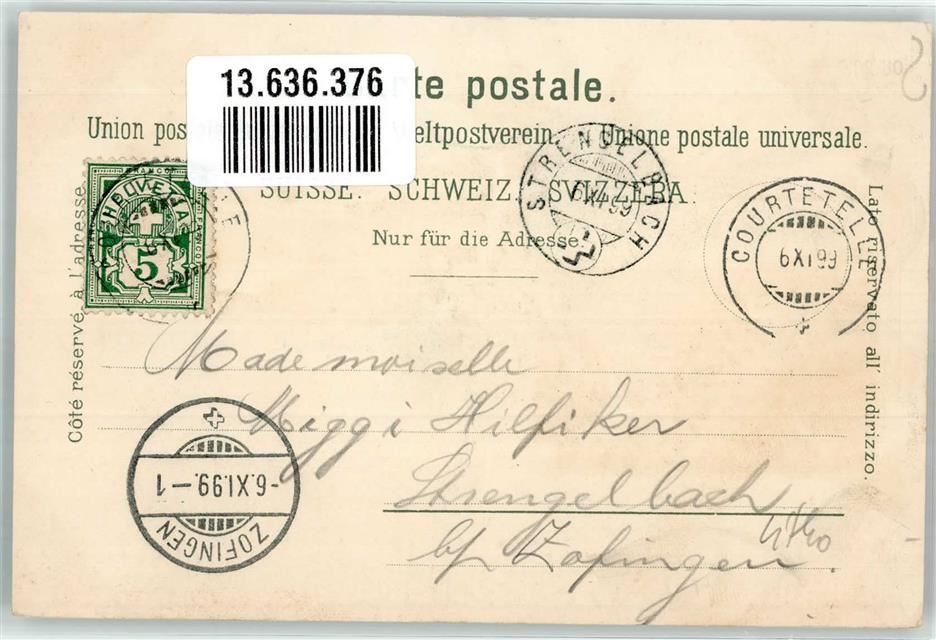 13.636.376
te postale.
Union pos eltpostverein. Unione postale universale.
SUISSE. SCHWEIZ. SVIZZERA.
Nur für die Adresse.
Côté réservé à l'adresse.
Lato riservato all' indirizzo.
HELVETIA
FRANCO
5
STRENGELBACH
6 XI 99
COURTETELLE
6 XI 99
Mademoiselle
Miggi Hilfiker
Strengelbach
b/ Zofingen.
Litho
-6.XI.99.-1
ZOFINGEN